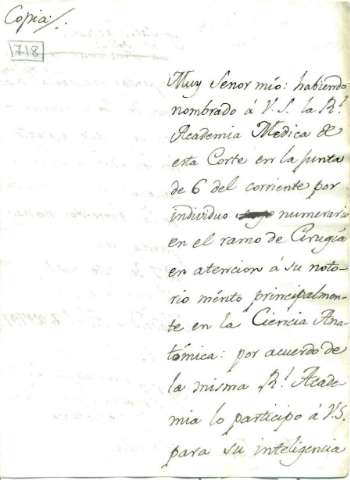 Copia:/.
718
Muy Señor mio: habiendo
nombrado á V.S. la Rl.
Academia Medica de
esta Corte en la junta
de 6 del corriente por
individuo numerario
en el ramo de Cirugía
en atencion á su noto-
rio mérito principalmen-
te en la Ciencia Ana-
tómica: por acuerdo de
la misma Rl. Acade-
mia lo participo á V.S.
para su inteligencia